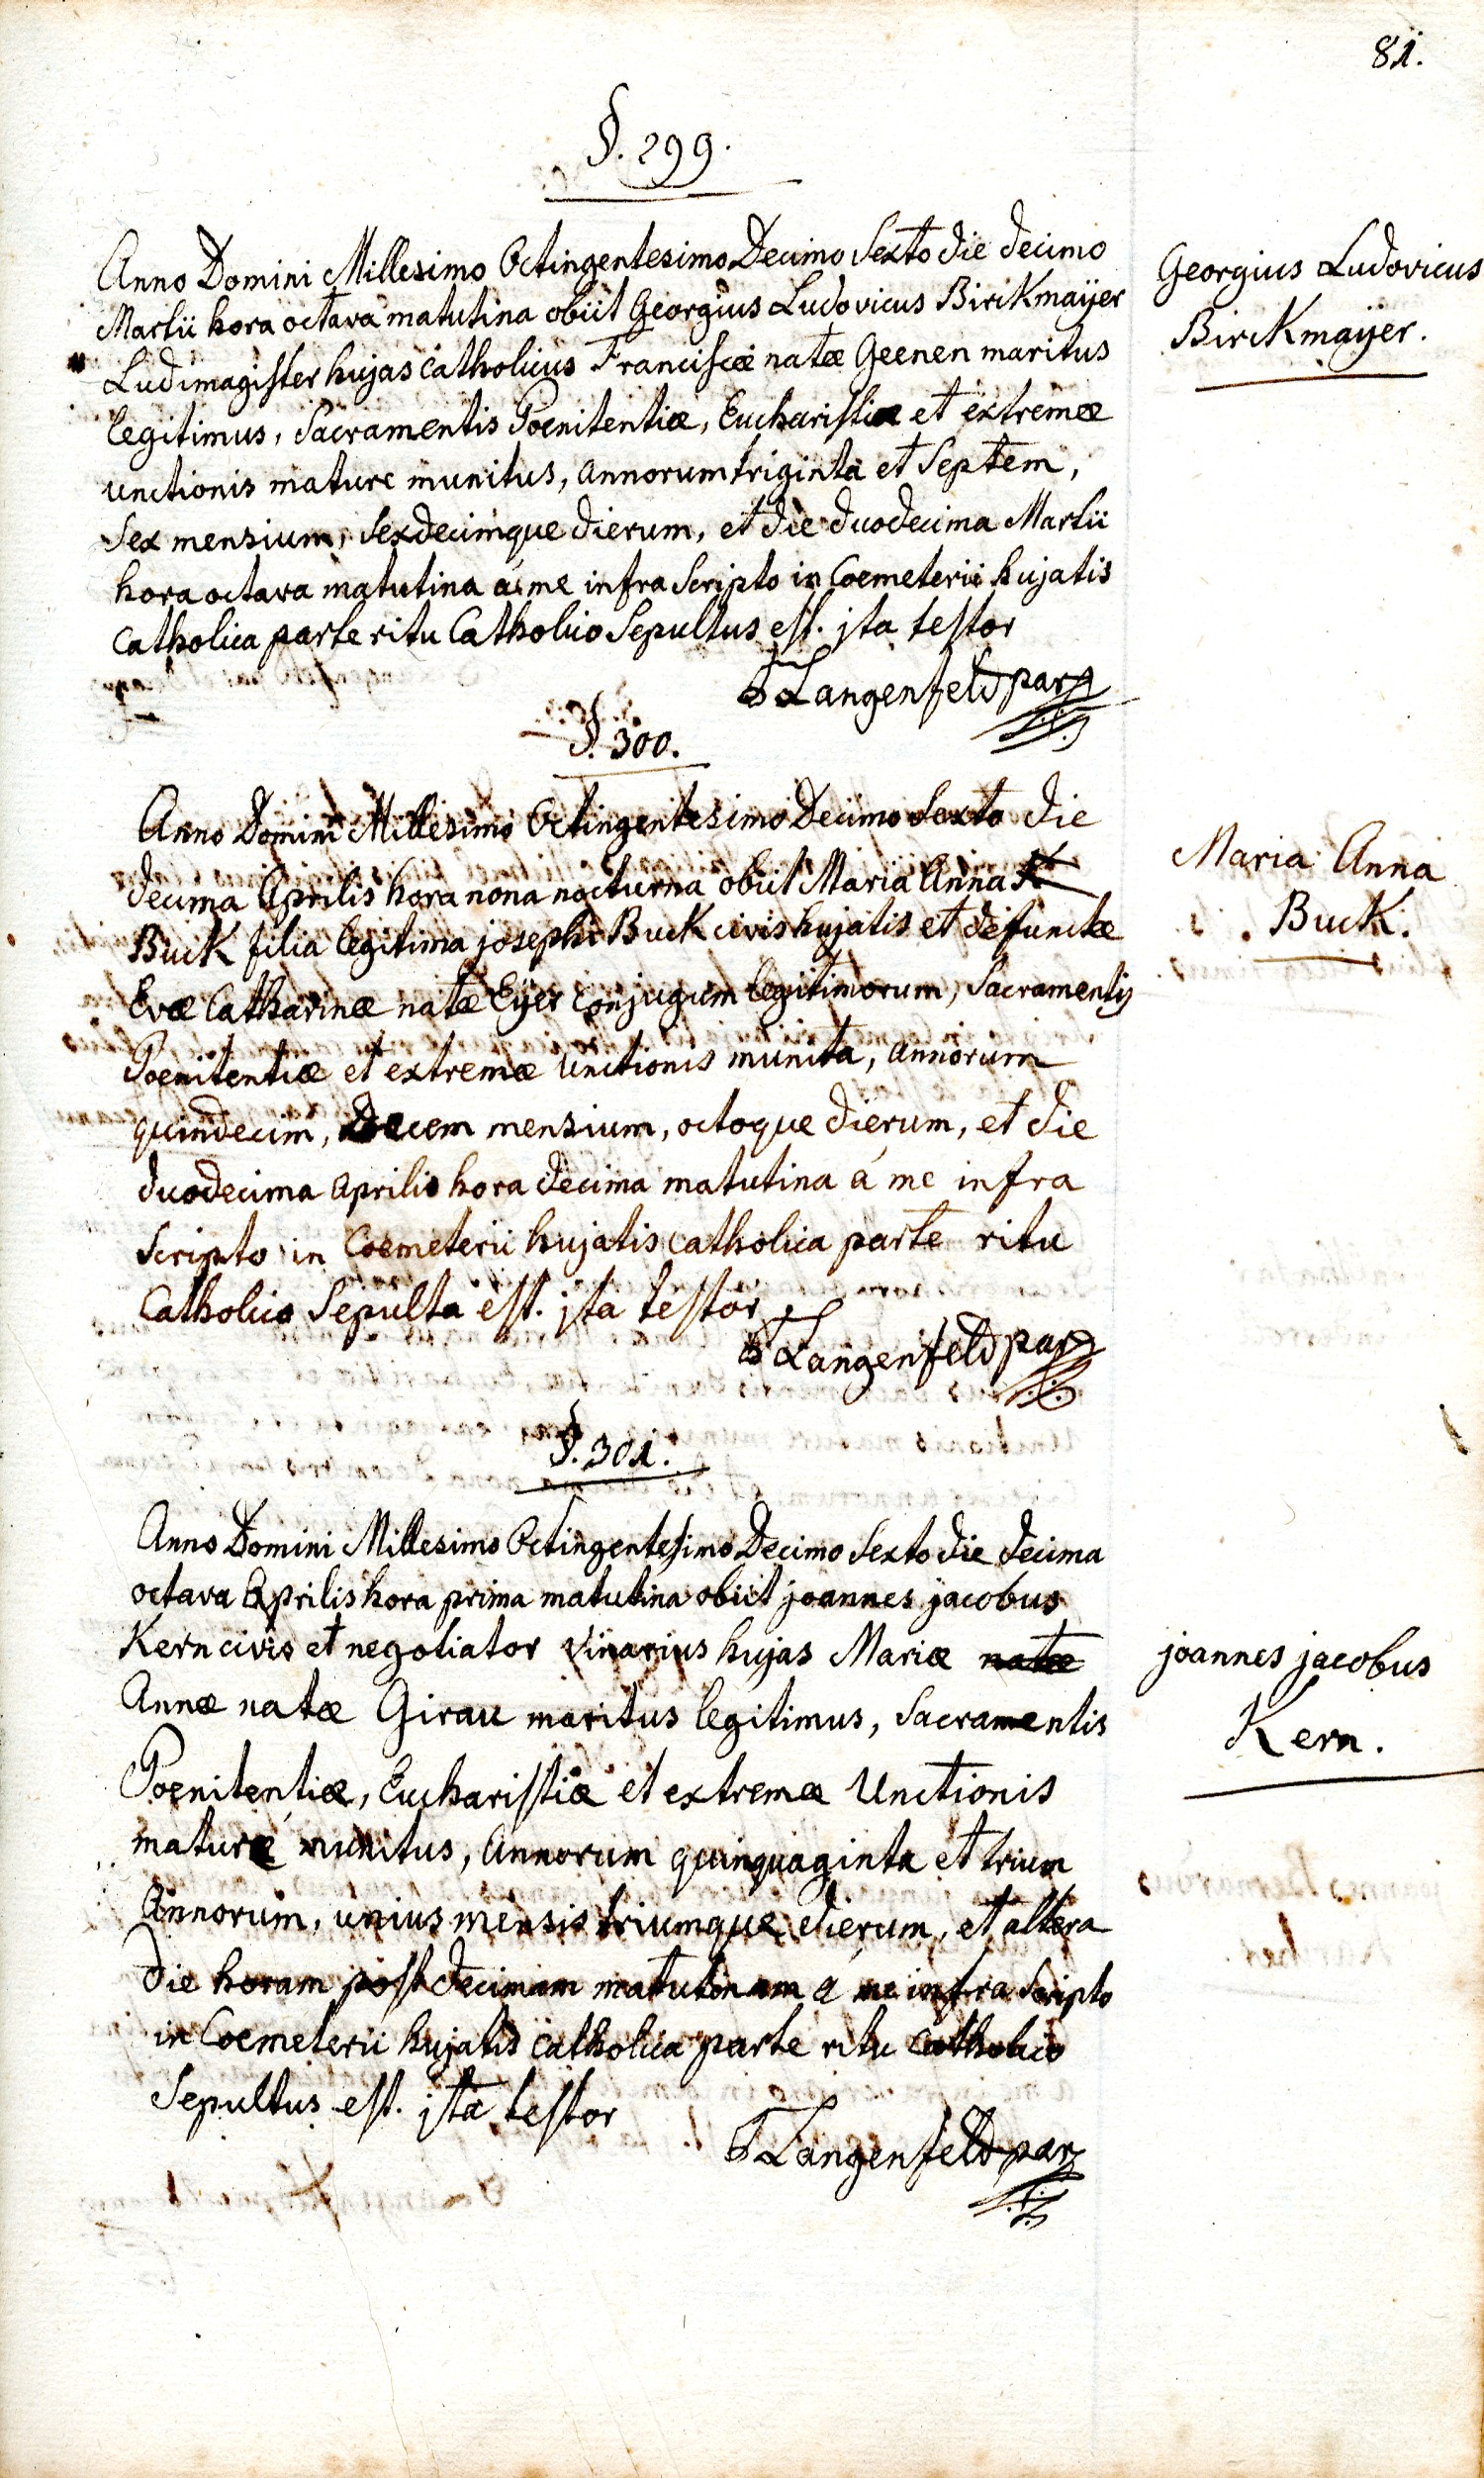 81.
§. 299.
Anno Domini Millesimo Octingentesimo Decimo Sexto die decimo
Martii hora octava matutina obiit Georgius Ludovicus Birckmaÿer
Ludimagister hujas catholicus Franciscæ natæ Geenen maritus
legitimus, Sacramentis Poenitentiæ, Eucharistiæ et extremæ
unctionis mature munitus, annorum triginta et Septem,
Sex mensium, Sexdecimque dierum, et die duodecima Martii
hora octava matutina á me infra Scripto in Coemeterii hujatis
catholica parte ritu Catholico Sepultus est. jta testor
Langenfeld par
Georgius Ludovicus
Birckmaÿer.
§. 300.
Anno Domini Millesimo Octingentesimo Decimo Sexto die
decima Aprilis hora nona nocturna obiit Maria Anna
Buck filia legitima josephi Buck civis hujatis et defunctæ
Evæ Catharinæ natæ Eÿer conjugum legitimorum, Sacramentis
Poenitentiæ et extremæ Unctionis munita, annorum
quindecim, Decem mensium, octoque dierum, et die
duodecima aprilis hora decima matutina á me infra
Scripto in Coemeterii hujatis catholica parte ritu
Catholico Sepulta est. jta testor
Langenfeld par
Maria Anna
Buck.
§. 301.
Anno Domini Millesimo Octingentesimo Decimo Sexto die decima
octava Aprilis hora prima matutina obiit joannes jacobus
Kern civis et negotiator vinarius hujas Mariæ natæ
Annæ natæ Girau maritus legitimus, Sacramentis
Poenitentiæ, Eucharistiæ et extremæ Unctionis
maturé munitus, annorum quinquaginta et trium
Annorum, unius mensis triumque dierum, et altera
die horam post decimam matutinam á me infra Scripto
in Coemeterii hujatis catholica parte ritu catholico
Sepultus est. jta testor
Langenfeld par
joannes jacobus
Kern.